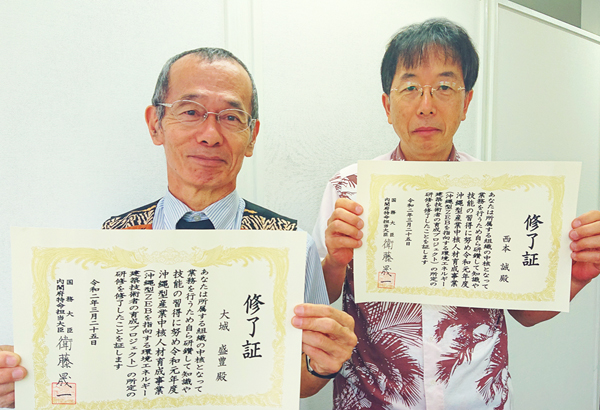 修了証
大城 盛豊 殿
あなたは所属する組織の中核となって
業務を行うため自ら研鑽して知識や
技能の習得に努め令和元年度
沖縄型産業中核人材育成事業
(沖縄型ZEBを指向する環境エネルギー
建築技術者の育成プロジェクト)の所定の
研修を修了したことを証します
令和二年三月二十五日
国務大臣
内閣府特命担当大臣 衛藤晟一
修了証
西本 誠 殿
あなたは所属する組織の中核となって
業務を行うため自ら研鑽して知識や
技能の習得に努め令和元年度
沖縄型産業中核人材育成事業
(沖縄型ZEBを指向する環境エネルギー
建築技術者の育成プロジェクト)の所定の
研修を修了したことを証します
令和二年三月二十五日
国務大臣
内閣府特命担当大臣 衛藤晟一